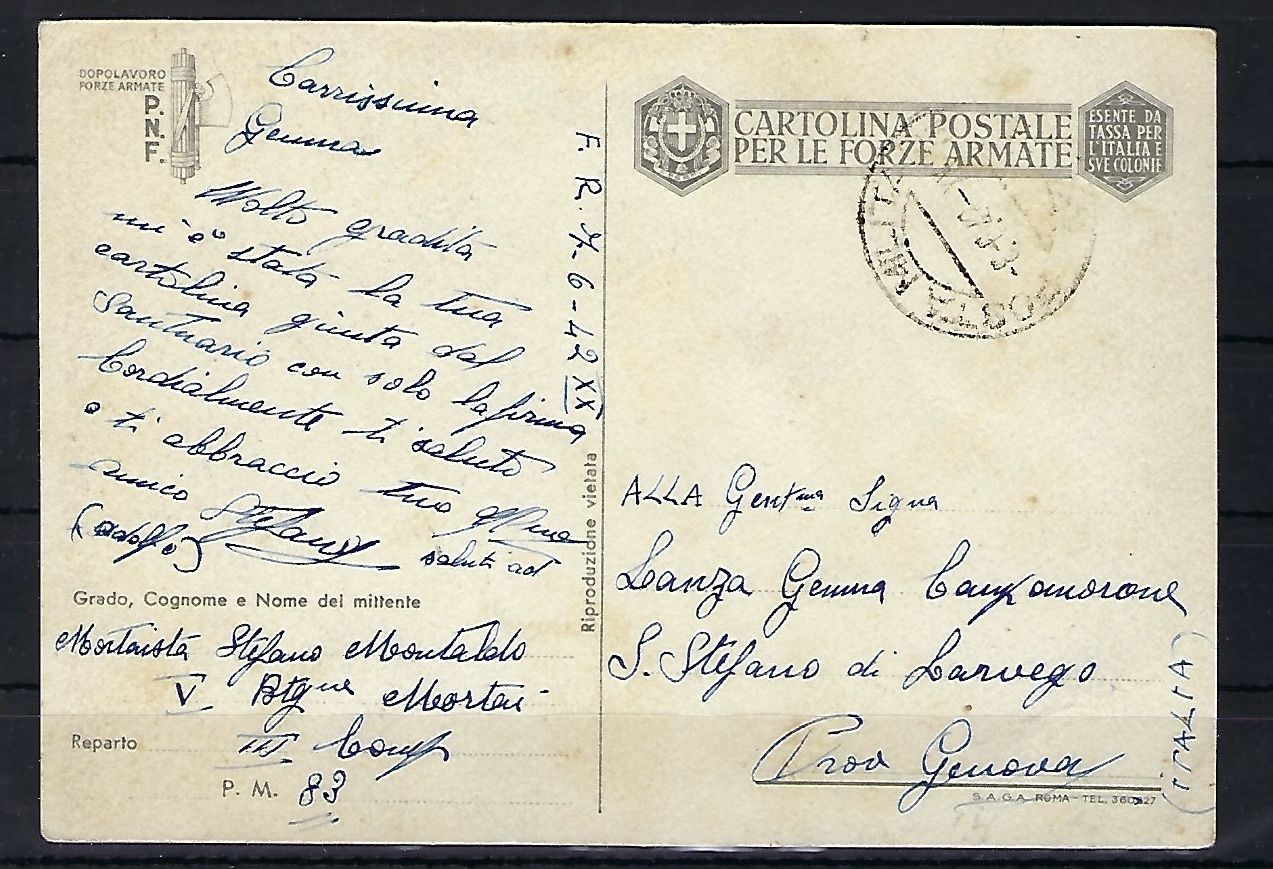 DOPOLAVORO
FORZE ARMATE
P.
N.
F.
Carrissima
Gemma
Molto gradita
mi è stata la tua
cartolina giunta dal
Santuario con solo la firma
Cordialmente ti saluto
e ti abbraccio tuo
amico Stefano
(adolfo)
saluti ad
F. R. 7-6-42 XX
Riproduzione vietata
Grado, Cognome e Nome del mittente
Mortaista Stefano Montaldo
V Btgne Mortai
Reparto III Comp
P. M. 83
CARTOLINA POSTALE
PER LE FORZE ARMATE
ESENTE DA
TASSA PER
L'ITALIA E
SVE COLONIE
POSTA MILITA
ALLA Gentma Signa
Lanza Gemma Campomorone
S. Stefano di Larvego
Prov Genova
(ITALIA)
S.A.G.A. ROMA - TEL. 360827